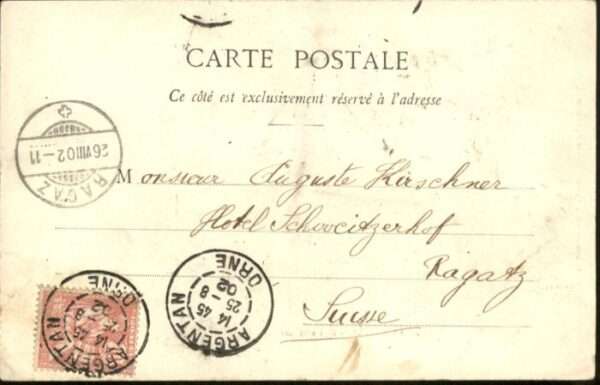 CARTE POSTALE
Ce côté est exclusivement réservé à l'adresse
RAGAZ
26.VIII.02-11
Monsieur Auguste Kirschner
Hotel Schweitzerhof
Ragatz
Suisse
ARGENTAN
14 45
25-8
02
ORNE
ARGENTAN
14 45
25-8
02
ORNE